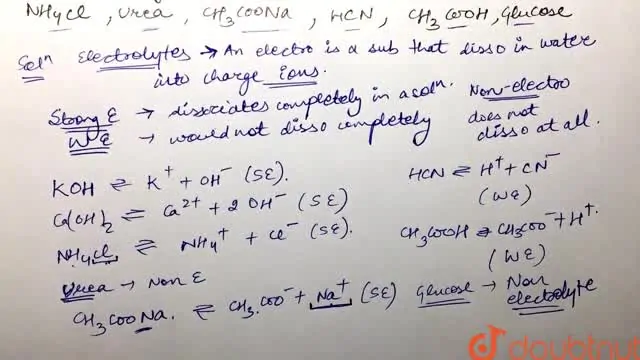 NH4Cl, Urea, CH3COONa, HCN, CH3COOH, Glucose
Solⁿ Electrolytes → An electro is a sub that disso in water
into charge ions.
Strong E → dissociates completely in a solⁿ.
W E → would not disso completely
Non-electro
does not
disso at all.
KOH ⇌ K⁺ + OH⁻ (SE).
Ca(OH)2 ⇌ Ca²⁺ + 2 OH⁻ (SE)
NH4Cl ⇌ NH4⁺ + Cl⁻ (SE).
Urea → Non E
CH3COONa. ⇌ CH3COO⁻ + Na⁺ (SE)
HCN ⇌ H⁺ + CN⁻
(WE)
CH3COOH ⇌ CH3COO⁻ + H⁺.
(WE)
Glucose → Non
electrolyte
doubtnut